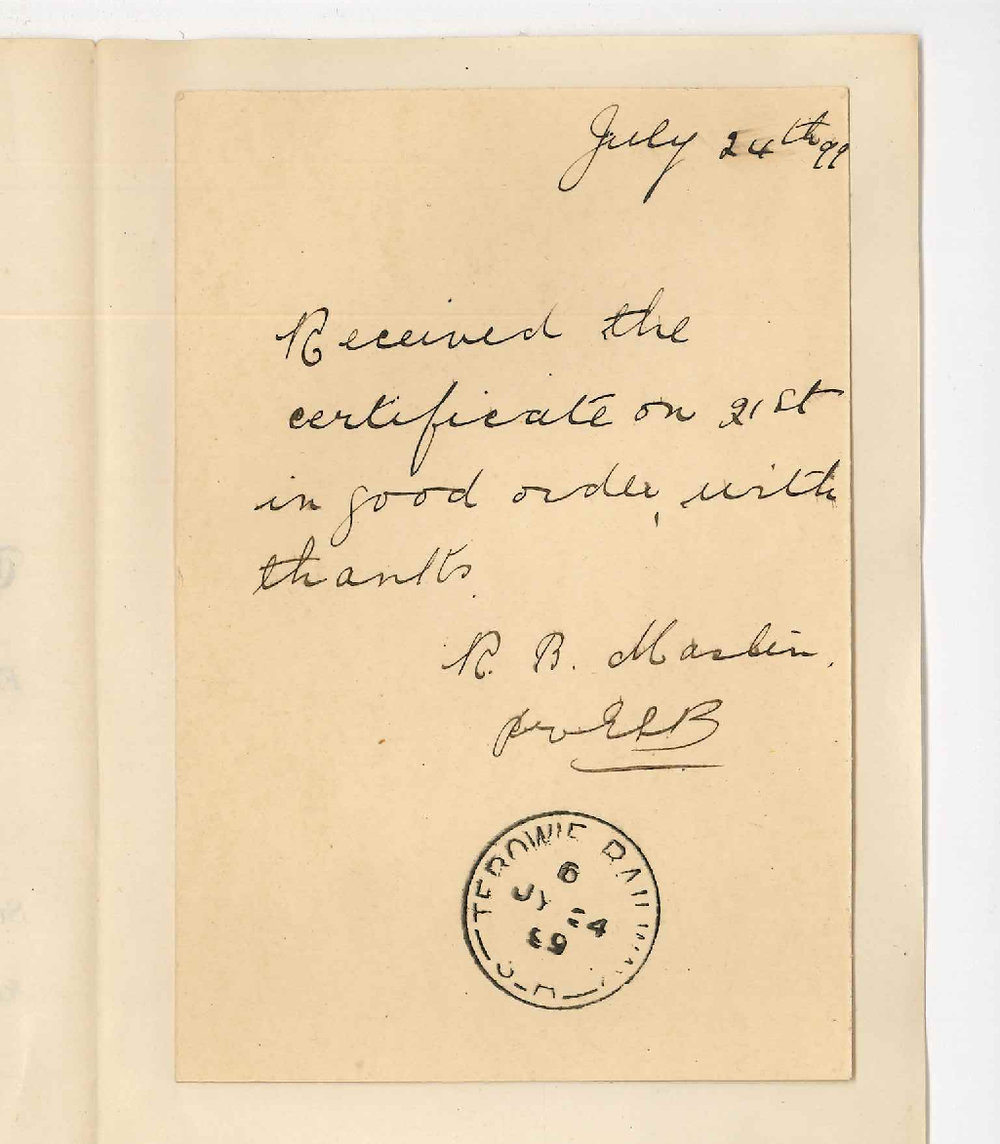 July 24th 99
Received the
certificate on 21st
in good order, with
thanks.
R. B. Maslin.
per ELB
TEROWIE RAILWAY
6
JY 24
99